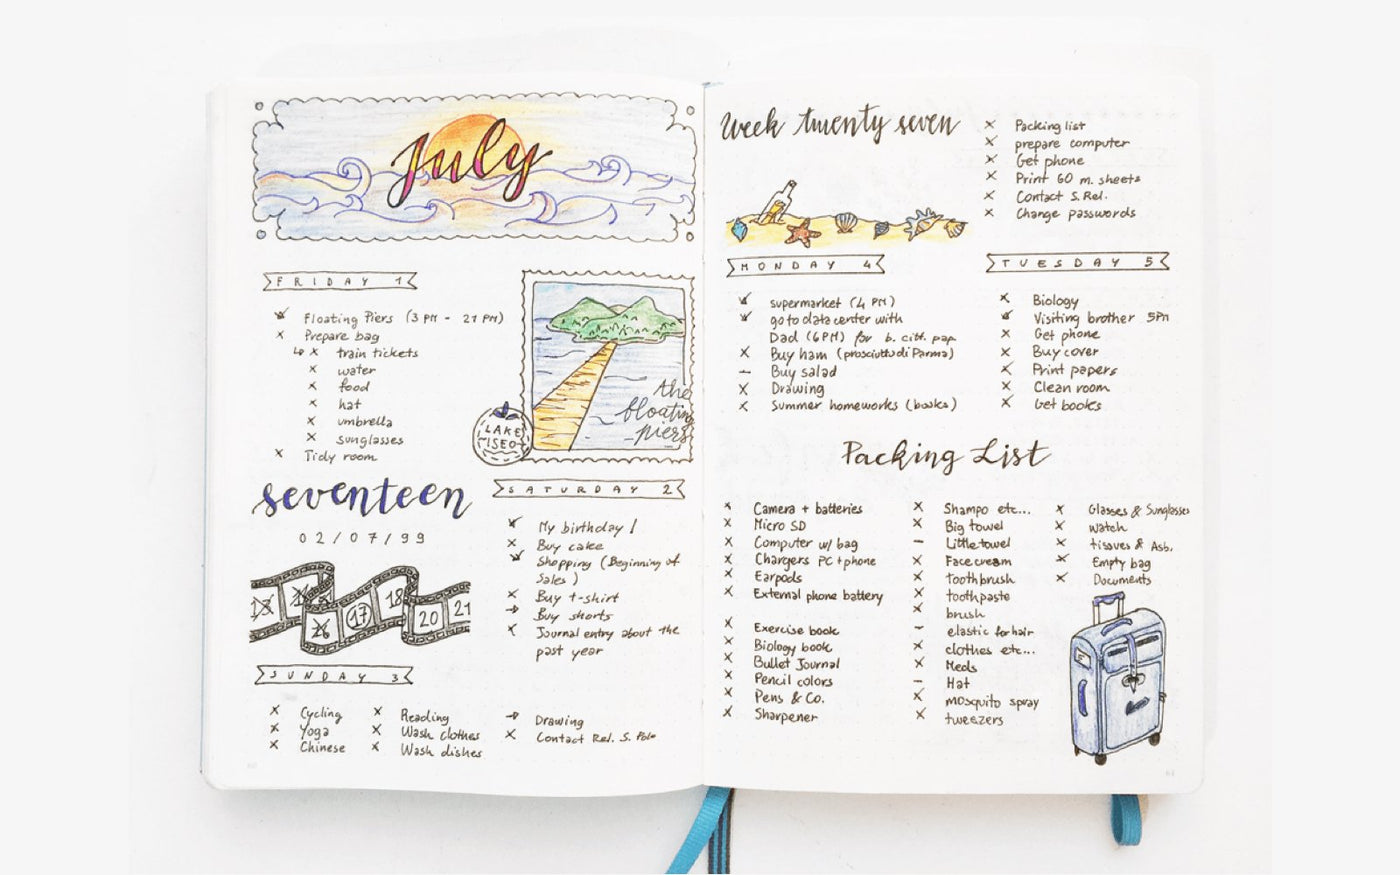 July
FRIDAY 1
Floating Piers (3 PM - 21 PM)
x Prepare bag
x train tickets
x water
x food
x hat
x umbrella
x sunglasses
x Tidy room
the
floating
piers
LAKE
ISEO
seventeen
02/07/99
15 16 17 18 20 21
SATURDAY 2
My birthday!
x Buy cake
Shopping (Beginning of
Sales)
x Buy t-shirt
→ Buy shorts
x Journal entry about the
past year
SUNDAY 3
x Cycling
x Yoga
x Chinese
x Reading
x Wash clothes
x Wash dishes
→ Drawing
x Contact Rel. S. Pole
Week twenty seven
x Packing list
x prepare computer
x Get phone
x Print 60 m. sheets
x Contact S. Rel.
x Change passwords
MONDAY 4
supermarket (4 PM)
go to data center with
Dad (6PM) for b. citt. pap.
x Buy ham (prosciutto di Parma)
– Buy salad
x Drawing
x Summer homeworks (books)
TUESDAY 5
x Biology
Visiting brother 5PM
x Get phone
x Buy cover
x Print papers
x Clean room
x Get books
Packing List
x Camera + batteries
x Micro SD
x Computer w/ bag
x Chargers PC + phone
x Earpods
x External phone battery
x Exercise book
x Biology book
x Bullet Journal
x Pencil colors
x Pens & Co.
x Sharpener
x Shampo etc...
x Big towel
– Little towel
x Face cream
x toothbrush
x toothpaste
x brush
– elastic for hair
x clothes etc...
x Meds
– Hat
x mosquito spray
x tweezers
x Glasses & Sunglasses
x watch
x tissues & Asb.
x Empty bag
x Documents
60
61